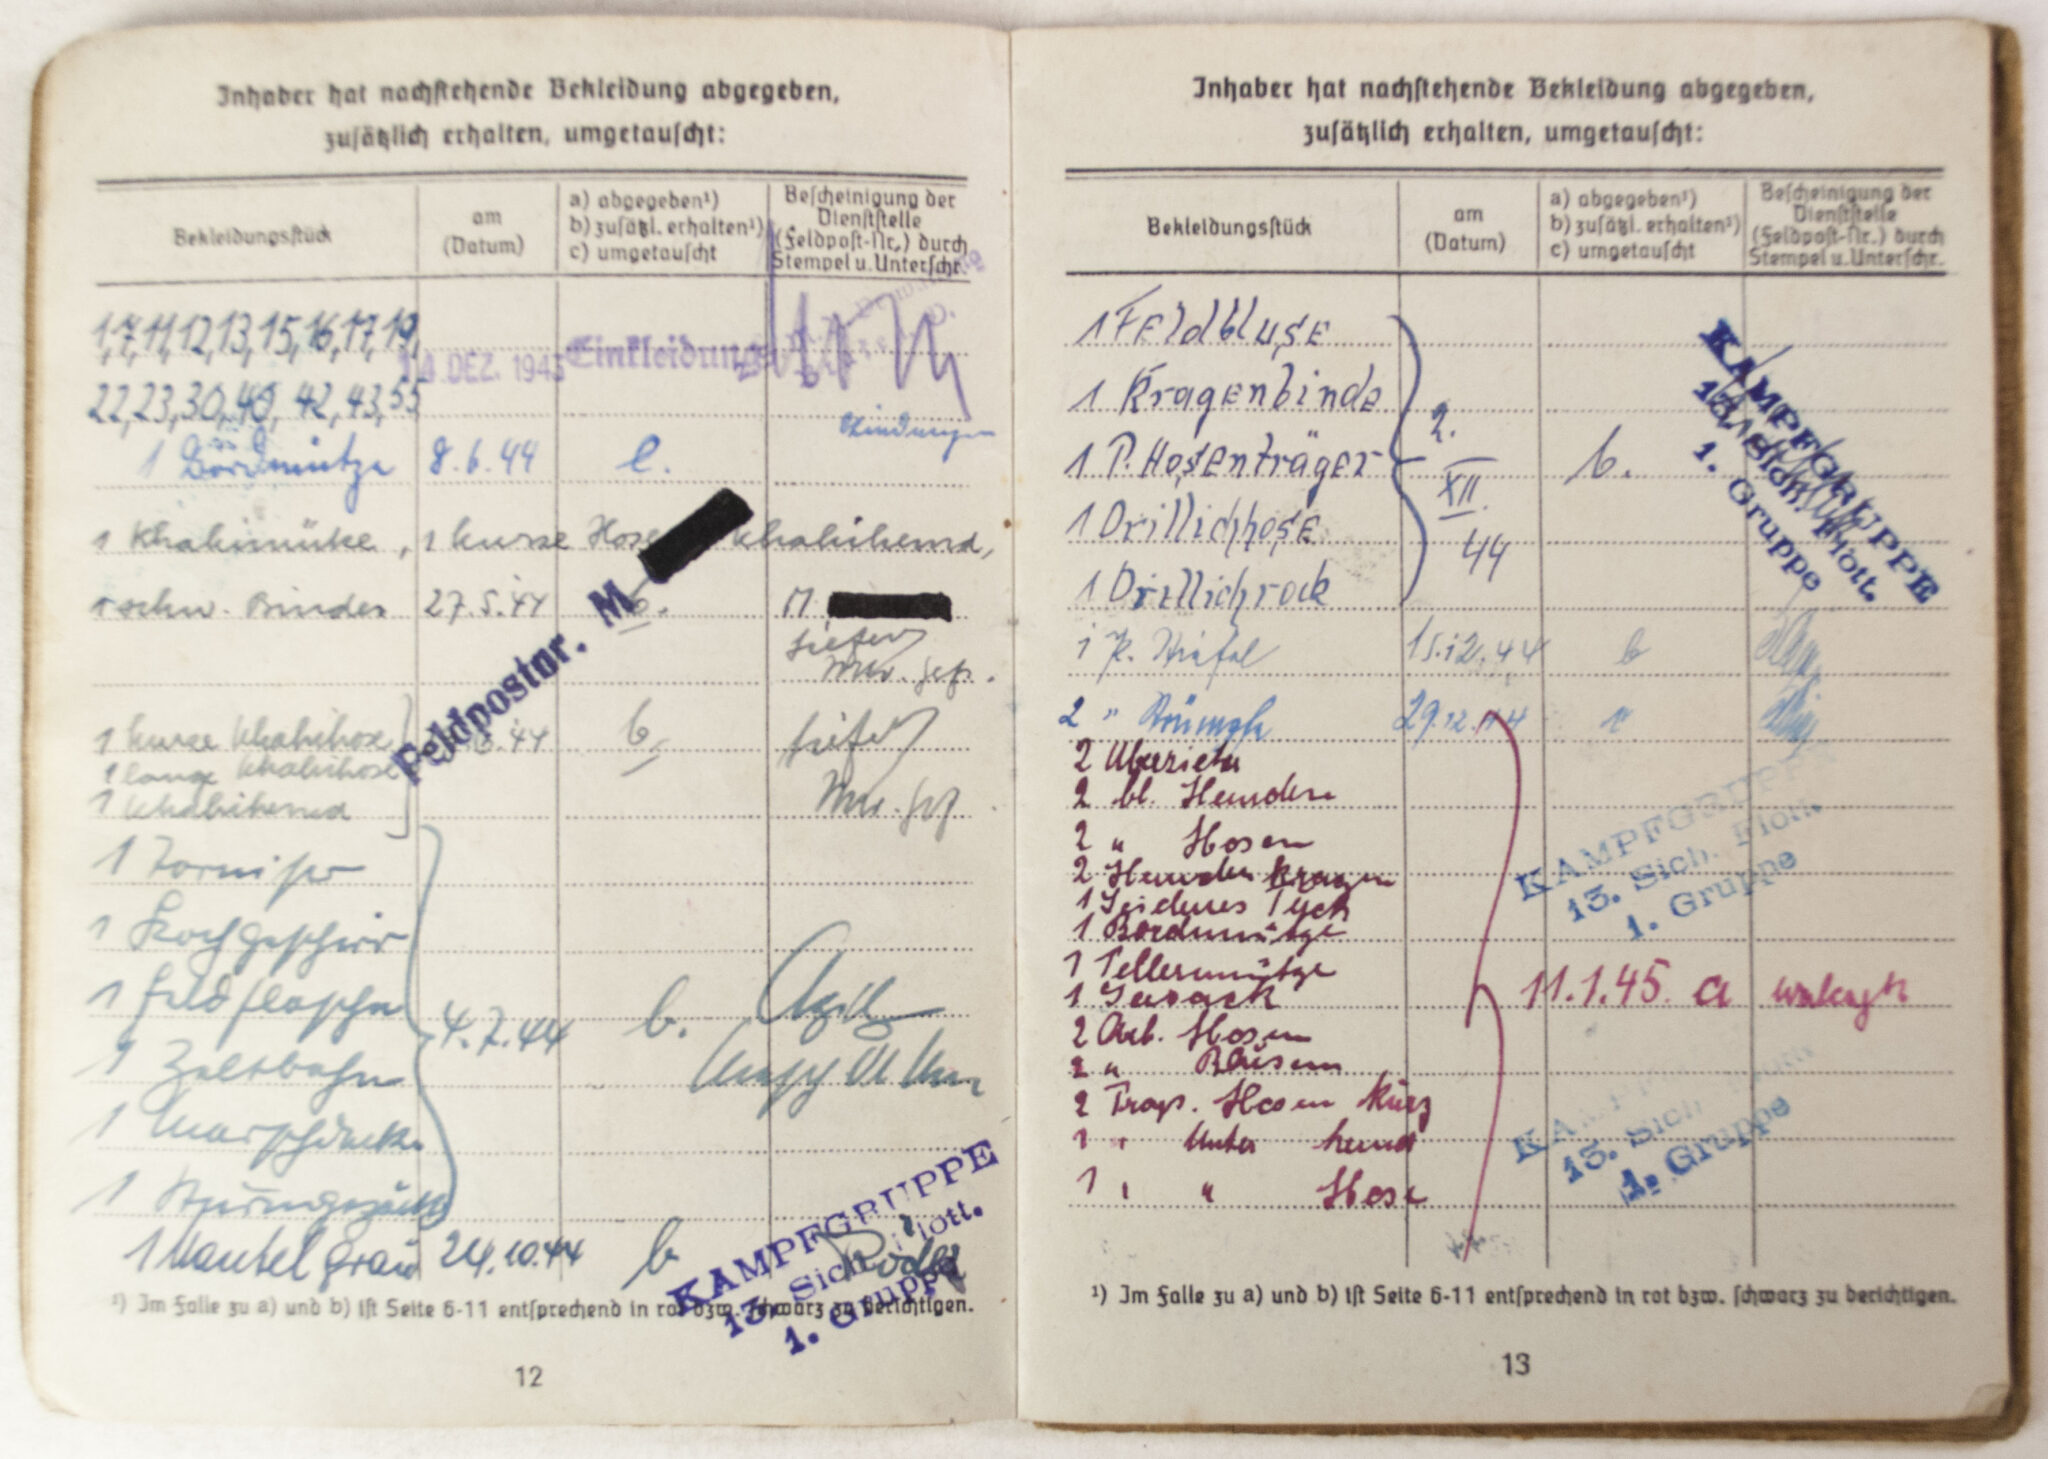 Inhaber hat nachstehende Bekleidung abgegeben,
zusätzlich erhalten, umgetauscht:
Bekleidungsstück
am
(Datum)
a) abgegeben¹)
b) zusätzl. erhalten¹)
c) umgetauscht
Bescheinigung der
Dienststelle
(Feldpost-Nr.) durch
Stempel u. Unterschr.
1, 7, 11, 12, 13, 15, 16, 17, 19,
DEZ. 1943 Einkleidung
22, 23, 30, 40, 42, 43, 55
1 Bordmütze 8.6.44
1 Khakimütze, 1 kurze Hose Khakihemd,
1 schw. Binder 27.5.44 b. M
Feldpostnr. M
1 kurze Khakihose .44 b.
1 lange Khakihose
1 Khakihemd
1 Tornister
1 Kochgeschirr
1 Feldflasche
4.7.44 b.
1 Zeltbahn
1
1 Sturmgepäck
1 Mantel grau 24.10.44 b
KAMPFGRUPPE
13. Sich. Flott.
1. Gruppe
¹) Im Falle zu a) und b) ist Seite 6-11 entsprechend in rot bzw. schwarz zu berichtigen.
12
Inhaber hat nachstehende Bekleidung abgegeben,
zusätzlich erhalten, umgetauscht:
Bekleidungsstück
am
(Datum)
a) abgegeben¹)
b) zusätzl. erhalten¹)
c) umgetauscht
Bescheinigung der
Dienststelle
(Feldpost-Nr.) durch
Stempel u. Unterschr.
1 Feldbluse
1 Kragenbinde
1 P. Hosenträger
1 Drillichhose
1 Drillichrock
2. XII. 44
b.
KAMPFGRUPPE
13. Sich. Flott.
1. Gruppe
1 P. Stiefel 15.12.44 b
2 " Strümpfe 29.12.44 "
2 Überzieher
2 bl. Hemden
2 " Hosen
2 Hemden kragen
1 Seidenes Tuch
1 Bordmütze
1 Tellermütze
1 Seesack
11.1.45. a
2 Arb. Hosen
2 " Blusen
2 Trop. Hosen kurz
1 " Unter hemd
1 " " Hose
KAMPFGRUPPE
13. Sich. Flott.
1. Gruppe
13. Sich
1. Gruppe
¹) Im Falle zu a) und b) ist Seite 6-11 entsprechend in rot bzw. schwarz zu berichtigen.
13